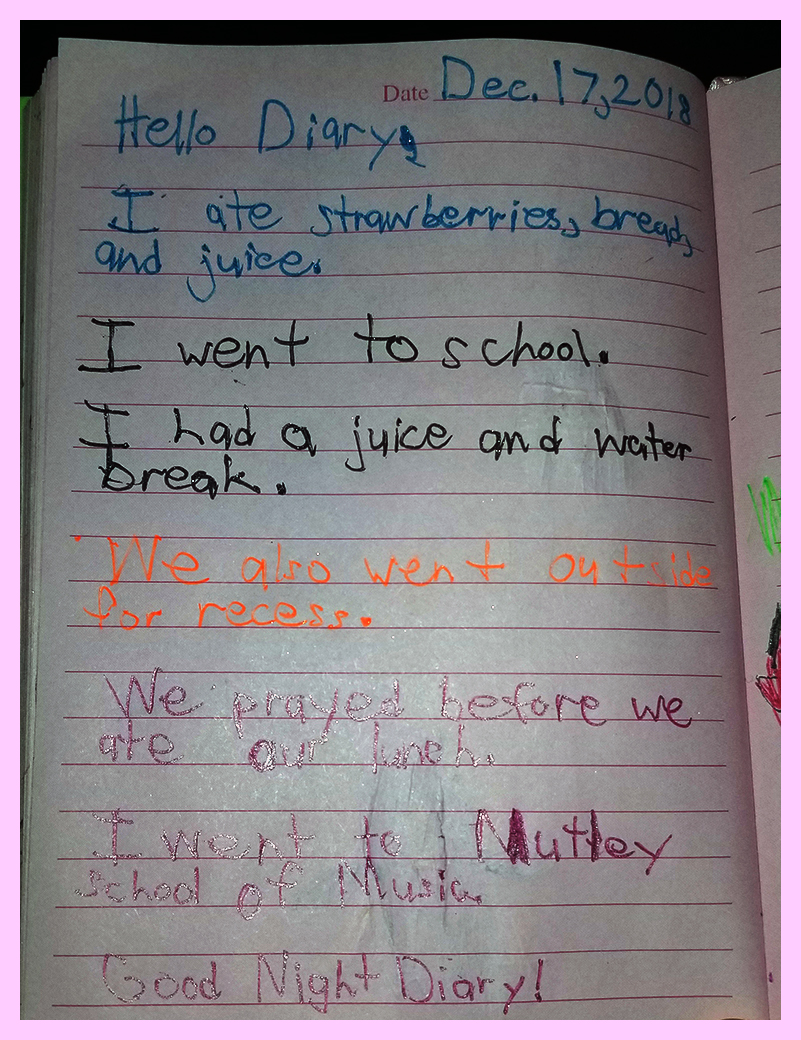 Date Dec. 17, 2018
Hello Diary,
I ate strawberries, bread,
and juice.
I went to school.
I had a juice and water
break.
We also went outside
for recess.
We prayed before we
ate our lunch.
I went to Nutley
school of Music.
Good Night Diary!